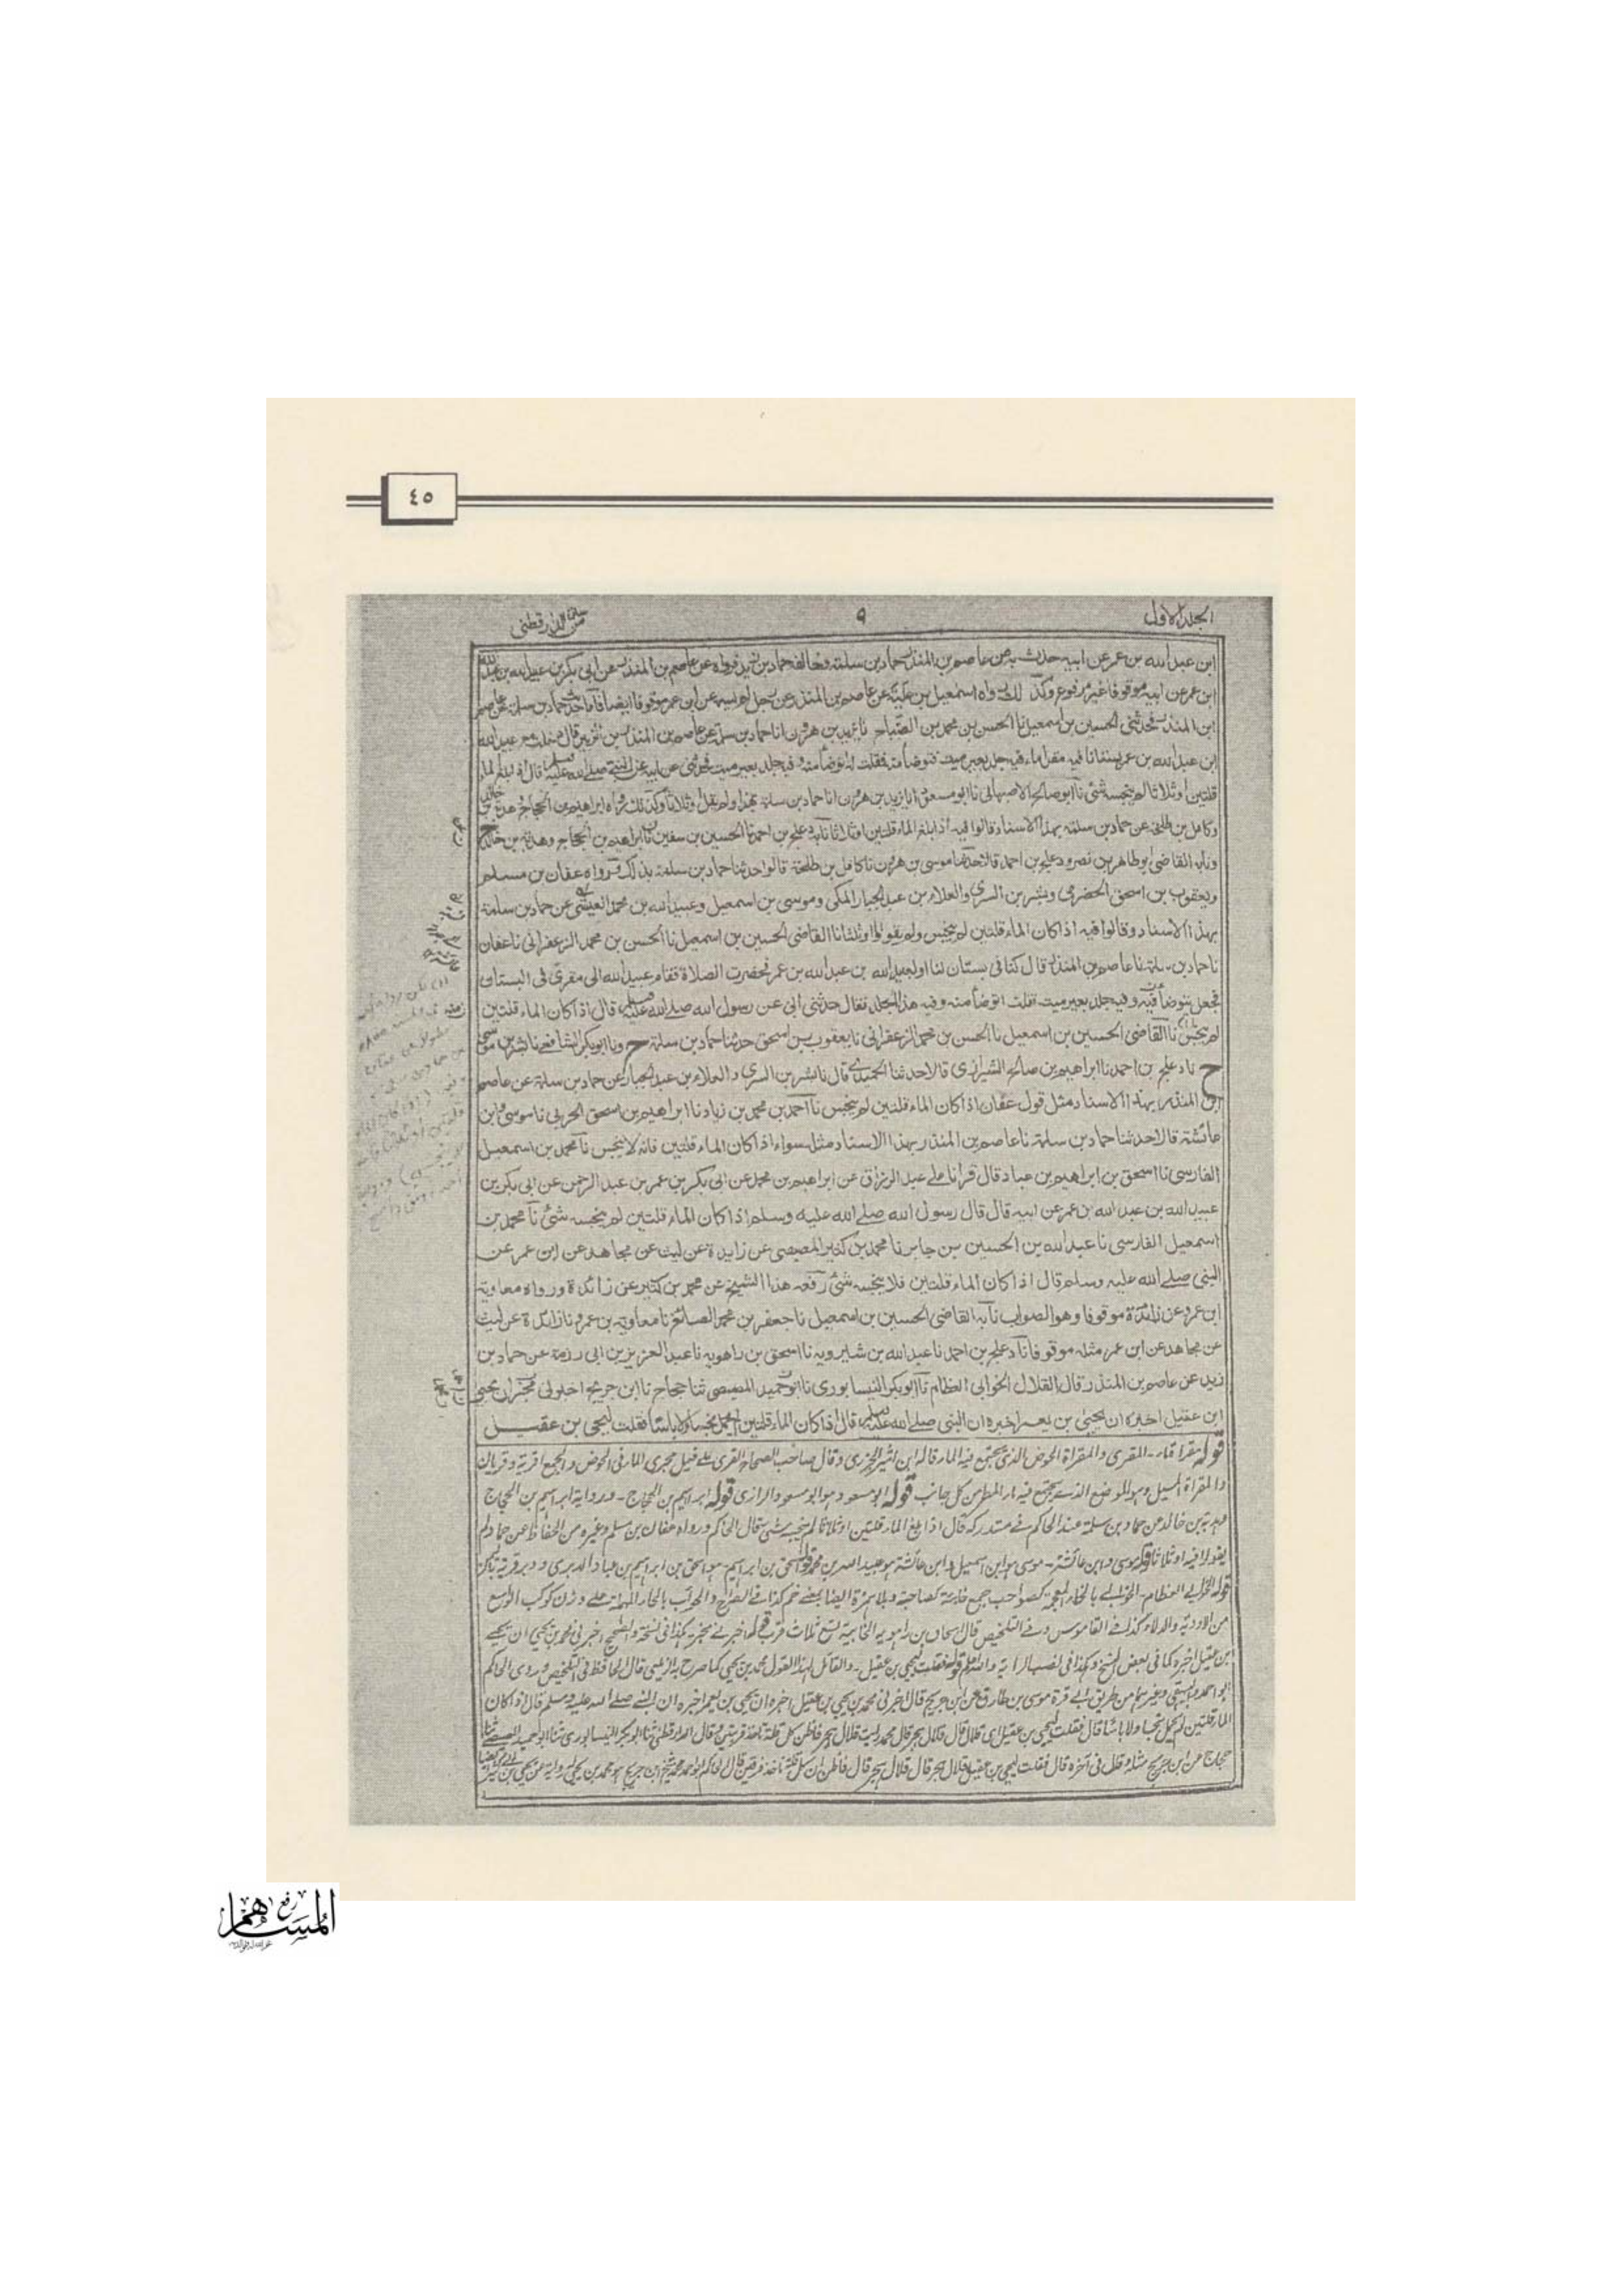 ٤٥
الجلد الاول
٩
سنن الدارقطني
ابن عبدالله بن عمر عن ابيه حدث به عن عاصم بن المنذر حماد بن سلمة وخالفه حماد بن زيد فرواه عن عاصم بن المنذر عن ابي بكر بن عبيدالله بن عبدالله
ابن عمر عن ابيه موقوفا غير مرفوع وكذلك رواه اسمعيل بن علية عن عاصم بن المنذر عن رجل لم يسمه عن ابن عمر موقوفا ايضا فاما حديث حماد بن سلمة عن عاصم
ابن المنذر فحدثني الحسين بن اسمعيل نا الحسن بن محمد بن الصباح نا يزيد بن هرون انا حماد بن سلمة عن عاصم بن المنذر بن الزبير قال دخلت مع عبيدالله
ابن عبدالله بن عمر بستانا فيه مقراماء فيه جلد بعير ميت فتوضأ منه فقلت له اتوضأ منه وفيه جلد بعير ميت فحدثني عن ابيه عن النبي صلى الله عليه وسلم قال اذا بلغ الماء
قلتين او ثلاثا لم ينجسه شئ نا ابو صالح الاصبهاني نا ابو مسعود انا يزيد بن هرون انا حماد بن سلمة بهذا ولم يقل او ثلاثا وكذلك رواه ابراهيم بن الحجاج وهدبة بن خالد
وكامل بن طلحة عن حماد بن سلمة بهذا الاسناد قالوا فيه اذا بلغ الماء قلتين او ثلاثا نا به دعلج بن احمد نا الحسين بن سفين نا ابراهيم بن الحجاج وهدبة بن خالد ح
ونا به القاضي ابو طاهر بن نصر ودعلج بن احمد قالا حدثنا موسى بن هرون نا كامل بن طلحة قالوا حدثنا حماد بن سلمة بذلك فرواه عفان بن مسلم
ويعقوب بن اسحق الحضرمي وبشر بن السري والعلاء بن عبد الجبار المكي وموسى بن اسمعيل وعبيد الله بن محمد العيشي عن حماد بن سلمة
بهذا الاسناد وقالوا فيه اذا كان الماء قلتين لم ينجس ولم يقولوا او ثلثا نا القاضي الحسين بن اسمعيل نا الحسن بن محمد الزعفراني نا عفان
نا حماد بن سلمة نا عاصم بن المنذر قال كنا في بستان لنا او لعبيدالله بن عبدالله بن عمر فحضرت الصلاة فقام عبيدالله الى مقرى في البستان
فجعل يتوضأ فيه وفيه جلد بعير ميت فقلت اتوضأ منه وفيه هذا الجلد فقال حدثني ابي عن رسول الله صلى الله عليه وسلم قال اذا كان الماء قلتين
لم ينجس نا القاضي الحسين بن اسمعيل نا الحسن بن محمد الزعفراني نا يعقوب بن اسحق حدثنا حماد بن سلمة ح ونا ابو بكر الشافعي نا بشر بن موسى
ح نا دعلج بن احمد نا ابراهيم بن صالح الشيرازي قالا حدثنا الحميدي قال نا بشر بن السري والعلاء بن عبد الجبار عن حماد بن سلمة عن عاصم
ابن المنذر بهذا الاسناد مثل قول عفان اذا كان الماء قلتين لم ينجس نا احمد بن محمد بن زياد نا ابراهيم بن اسحق الحربي نا موسى وابن
عائشة قالا حدثنا حماد بن سلمة نا عاصم بن المنذر بهذا الاسناد مثله سواء اذا كان الماء قلتين فانه لا ينجس نا محمد بن اسمعيل
الفارسي نا اسحق بن ابراهيم بن عباد قال قرأنا على عبد الرزاق عن ابراهيم بن محمد عن ابي بكر بن عمر بن عبد الرحمن عن ابي بكر بن
عبيدالله بن عبدالله بن عمر عن ابيه قال قال رسول الله صلى الله عليه وسلم اذا كان الماء قلتين لم ينجسه شئ نا محمد بن
اسمعيل الفارسي نا عبدالله بن الحسين بن جابر نا محمد بن كثير المصيصي عن زايدة عن ليث عن مجاهد عن ابن عمر عن
النبي صلى الله عليه وسلم قال اذا كان الماء قلتين فلا ينجسه شئ رفعه هذا الشيخ عن محمد بن كثير عن زائدة ورواه معاوية
ابن عمرو عن زائدة موقوفا وهو الصواب نا به القاضي الحسين بن اسمعيل نا جعفر بن محمد الصائغ نا معاوية بن عمرو نا زائدة عن ليث
عن مجاهد عن ابن عمر مثله موقوفا نا دعلج بن احمد نا عبدالله بن شيرويه نا اسحق بن راهويه نا عبد العزيز بن ابي رزمة عن حماد بن
زيد عن عاصم بن المنذر قال القلال الخوابي العظام نا ابو بكر النيسابوري نا ابو حميد المصيصي ثنا حجاج نا ابن جريج اخبرني محمد ان يحيى
ابن عقيل اخبره ان يحيى بن يعمر اخبره ان النبي صلى الله عليه وسلم قال اذا كان الماء قلتين لم يحمل نجسا ولا باسا فقلت ليحيى بن عقيل
قوله مقراماء - المقرى والمقراة الحوض الذي يجتمع فيه الماء قاله ابن اثير الجزري وقال صاحب الصحاح القرى على فعيل مجرى الماء في الحوض والجمع اقرية وقريان
والمقراة المسيل وهو الموضع الذي يجتمع فيه ماء المطر من كل جانب قوله ابو مسعود هو ابو مسعود الرازي قوله ابراهيم بن الحجاج - ورواية ابراهيم بن الحجاج
وهدبة بن خالد عن حماد بن سلمة عند الحاكم في مستدركه قال اذا بلغ الماء قلتين او ثلاثا لم ينجسه شئ قال الحاكم ورواه عفان بن مسلم وغيره من الحفاظ عن حماد ولم
يقولوا فيه او ثلاثا قوله موسى وابن عائشة - موسى هو ابن اسمعيل وابن عائشة هو عبيد الله بن محمد قوله اسحق بن ابراهيم - هو اسحق بن ابراهيم بن عباد الدبري
قوله الخوابي العظام - الخوابي بالخاء المعجمة
من الاودية والدلاء كذا في القاموس وفي التلخيص قال اسحاق بن راهويه الخابية تسع ثلاث قرب
ابن عقيل اخبره كما في بعض النسخ وهكذا في نصب الراية والله اعلم قوله فقلت ليحيى بن عقيل - والقائل لهذا القول محمد بن يحيى كما صرح به الزيلعي قال الحافظ في التلخيص وروى الحاكم
ابو احمد والبيهقي وغيرهما من طريق ابي قرة موسى بن طارق عن ابن جريج قال اخبرني محمد بن يحيى بن عقيل اخبره ان يحيى بن يعمر اخبره ان النبي صلى الله عليه وسلم قال اذا كان
الماء قلتين لم يحمل نجسا ولا باسا قال فقلت ليحيى بن عقيل اي قلال قال قلال هجر قال محمد رايت قلال هجر فاظن كل قلة تاخذ قربتين وقال الدارقطني ثنا ابو بكر النيسابوري ثنا ابو حميد المصيصي ثنا
حجاج عن ابن جريج مثله وقال في آخره قال فقلت ليحيى بن عقيل قلال هجر قال قلال هجر قال فاظن ان كل قلة تاخذ فرقين قال الحاكم ابو احمد محمد شيخ ابن جريج هو محمد بن يحيى له رواية عن يحيى بن
المساهم
رفع